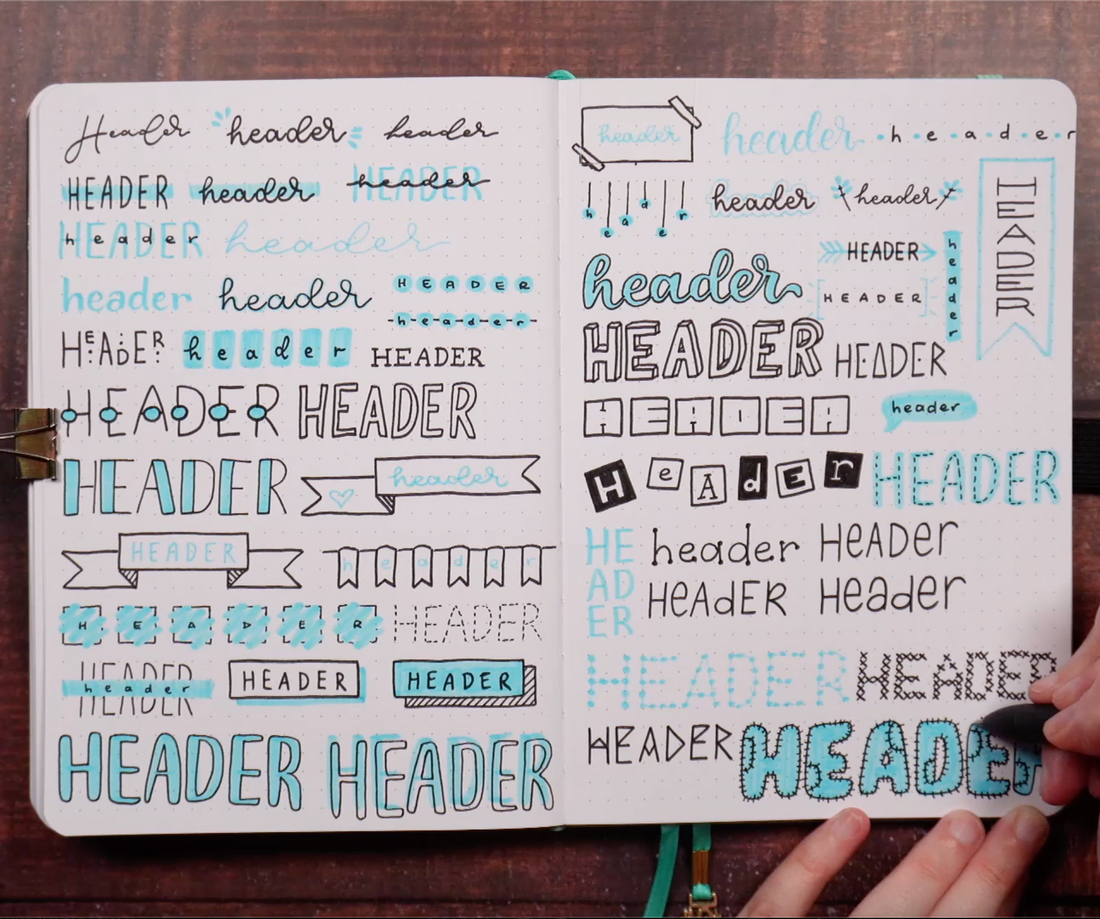 Header header header
HEADER header HEADER header
HEADER header header
header header HEADER
header
HEADER header HEADER
HEADER HEADER
HEADER header
HEADER header
HEADER HEADER
HEADER header HEADER HEADER
HEADER HEADER
header header header
header header header HEADER
header HEADER header
HEADER
HEADER HEADER
HEADER header
HeAdEr HEADER
HE header HEADer
AD HEAdER Header
ER
HEADER HEADER
HEADER HEADER